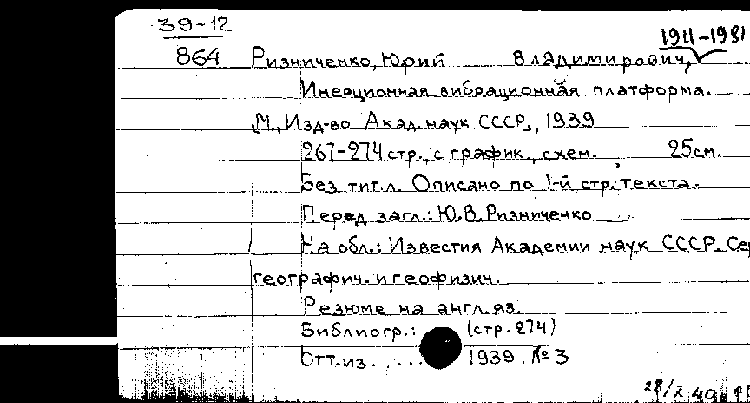 39-12
1911-1981
864 Ризниченко, Юрий Владимирович,
Инерционная вибрационная платформа.
М., Изд-во Акад. наук СССР, 1939
267-274 стр., с график., схем. ; 25см.
Без тит.л. Описано по 1-й стр. текста.
Перед загл.: Ю.В. Ризниченко
На обл.: Известия Академии наук СССР. Сер
географич. и геофизич.
Резюме на англ. яз.
Библиогр.: (стр. 274)
Отт. из ..... 1939. № 3